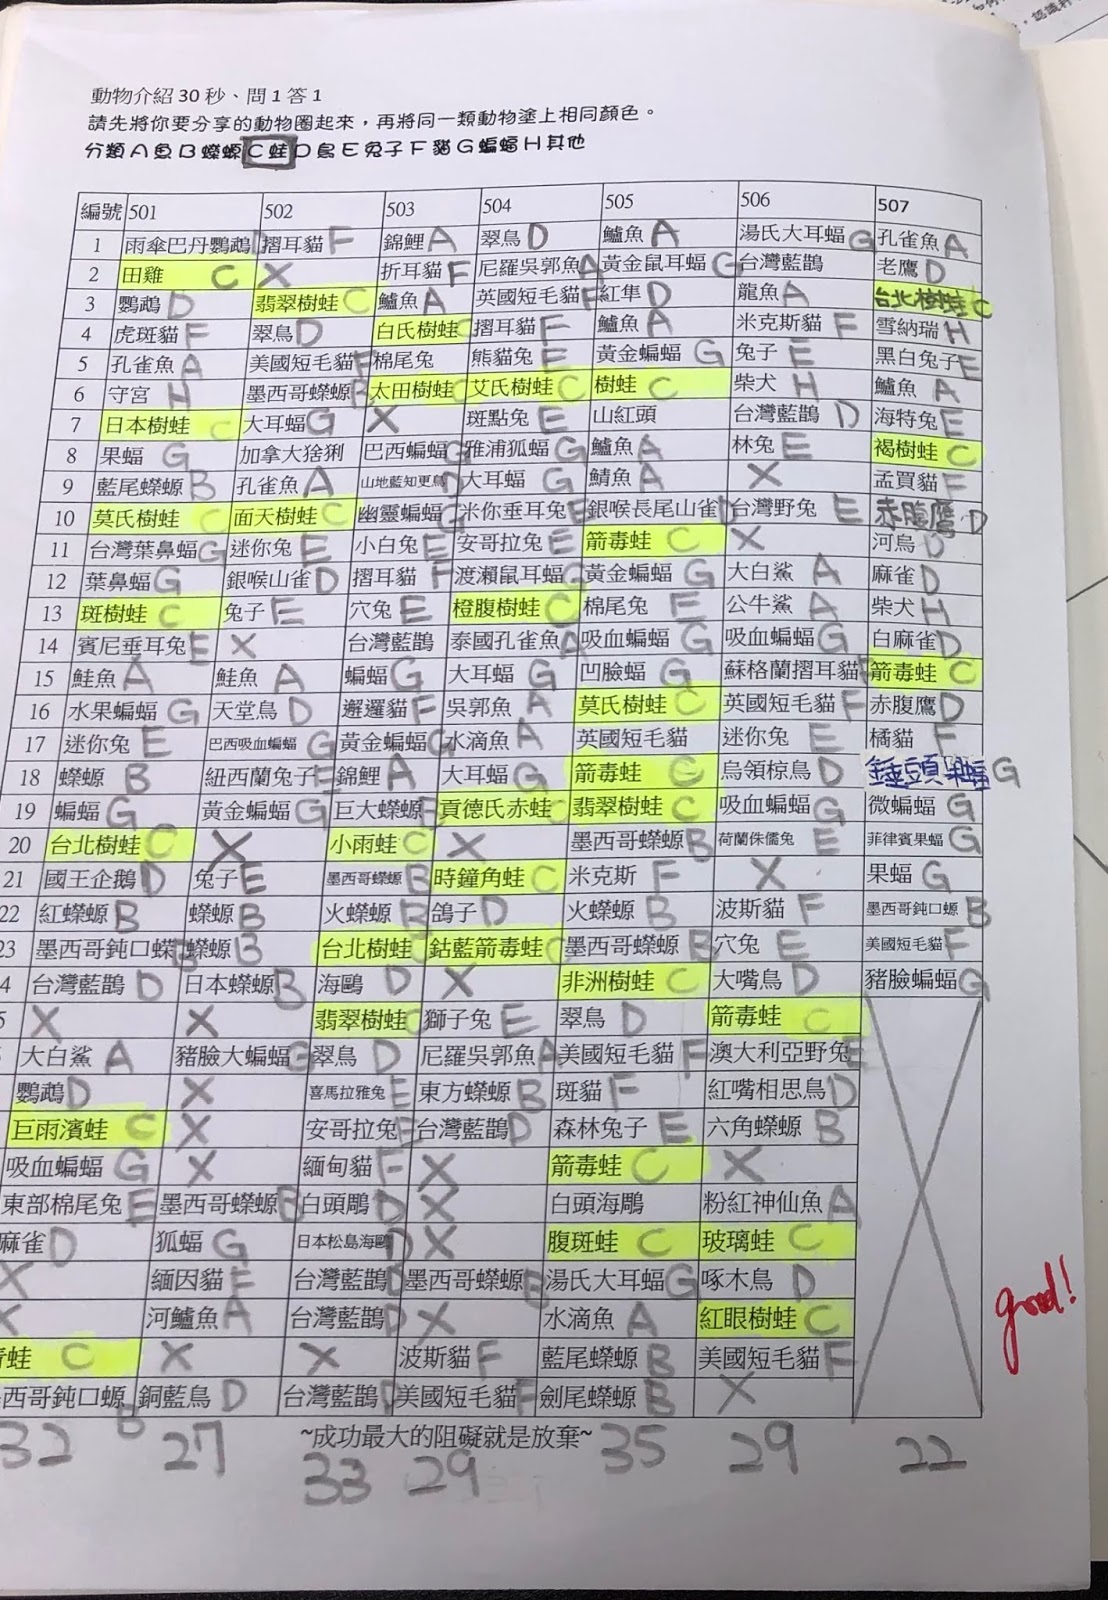 動物介紹 30 秒、問 1 答 1
請先將你要分享的動物圈起來，再將同一類動物塗上相同顏色。
分類 A 魚 B 蠑螈 C 蛙 D 鳥 E 兔子 F 貓 G 蝙蝠 H 其他
編號 501 502 503 504 505 506 507
1 雨傘巴丹鸚鵡 D 摺耳貓 F 錦鯉 A 翠鳥 D 鱸魚 A 湯氏大耳蝠 G 孔雀魚 A
2 田雞 C X 折耳貓 F 尼羅吳郭魚 A 黃金鼠耳蝠 G 台灣藍鵲 老鷹 D
3 鸚鵡 D 翡翠樹蛙 C 鱸魚 A 英國短毛貓 F 紅隼 D 龍魚 A 台北樹蛙 C
4 虎斑貓 F 翠鳥 D 白氏樹蛙 C 摺耳貓 F 鱸魚 A 米克斯貓 F 雪納瑞 H
5 孔雀魚 A 美國短毛貓 F 棉尾兔 熊貓兔 E 黃金蝙蝠 G 兔子 E 黑白兔子 E
6 守宮 H 墨西哥蠑螈 B 太田樹蛙 C 艾氏樹蛙 C 樹蛙 C 柴犬 H 鱸魚 A
7 日本樹蛙 C 大耳蝠 G X 斑點兔 E 山紅頭 台灣藍鵲 D 海特兔 E
8 果蝠 G 加拿大猞猁 巴西蝙蝠 G 雅浦狐蝠 G 鱸魚 A 林兔 E 褐樹蛙 C
9 藍尾蠑螈 B 孔雀魚 A 山地藍知更鳥 D 大耳蝠 G 鯖魚 A X 孟買貓 F
10 莫氏樹蛙 C 面天樹蛙 C 幽靈蝙蝠 G 米你垂耳兔 E 銀喉長尾山雀 D 台灣野兔 E 赤腹鷹 D
11 台灣葉鼻蝠 G 迷你兔 E 小白兔 E 安哥拉兔 E 箭毒蛙 C X 河烏 D
12 葉鼻蝠 G 銀喉山雀 D 摺耳貓 F 渡瀨鼠耳蝠 G 黃金蝙蝠 G 大白鯊 A 麻雀 D
13 斑樹蛙 C 兔子 E 穴兔 E 橙腹樹蛙 C 棉尾兔 E 公牛鯊 A 柴犬 H
14 賓尼垂耳兔 E X 台灣藍鵲 泰國孔雀魚 A 吸血蝙蝠 G 吸血蝙蝠 G 白麻雀 D
15 鮭魚 A 鮭魚 A 蝙蝠 G 大耳蝠 G 凹臉蝠 G 蘇格蘭摺耳貓 F 箭毒蛙 C
16 水果蝙蝠 G 天堂鳥 D 邂邏貓 F 吳郭魚 A 莫氏樹蛙 C 英國短毛貓 F 赤腹鷹 D
17 迷你兔 E 巴西吸血蝙蝠 G 黃金蝙蝠 G 水滴魚 A 英國短毛貓 迷你兔 E 橘貓 F
18 蠑螈 B 紐西蘭兔子 E 錦鯉 A 大耳蝠 G 箭毒蛙 C 烏領椋鳥 D 錘頭果蝠 G
19 蝙蝠 G 黃金蝙蝠 G 巨大蠑螈 B 貢德氏赤蛙 C 翡翠樹蛙 C 吸血蝙蝠 G 微蝙蝠 G
20 台北樹蛙 C X 小雨蛙 C X 墨西哥蠑螈 B 荷蘭侏儒兔 E 菲律賓果蝠 G
21 國王企鵝 D 兔子 E 墨西哥蠑螈 B 時鐘角蛙 C 米克斯 F X 果蝠 G
22 紅蠑螈 B 蠑螈 B 火蠑螈 B 鴿子 D 火蠑螈 B 波斯貓 F 墨西哥鈍口螈 B
23 墨西哥鈍口蠑 B 蠑螈 B 台北樹蛙 C 鈷藍箭毒蛙 C 墨西哥蠑螈 B 穴兔 E 美國短毛貓 F
4 台灣藍鵲 D 日本蠑螈 B 海鷗 D X 非洲樹蛙 C 大嘴鳥 D 豬臉蝙蝠 G
5 X X 翡翠樹蛙 C 獅子兔 E 翠鳥 D 箭毒蛙 C
大白鯊 A 豬臉大蝙蝠 G 翠鳥 D 尼羅吳郭魚 A 美國短毛貓 F 澳大利亞野兔 E
鸚鵡 D X 喜馬拉雅兔 E 東方蠑螈 B 斑貓 F 紅嘴相思鳥 D
巨雨濱蛙 C X 安哥拉兔 E 台灣藍鵲 D 森林兔子 E 六角蠑螈 B
吸血蝙蝠 G X 緬甸貓 F X 箭毒蛙 C X
東部棉尾兔 E 墨西哥蠑螈 B 白頭鵰 D X 白頭海鵰 粉紅神仙魚 A
麻雀 D 狐蝠 G 日本松島海鷗 D X 腹斑蛙 C 玻璃蛙 C
X 緬因貓 F 台灣藍鵲 D 墨西哥蠑螈 B 湯氏大耳蝠 G 啄木鳥 D
X 河鱸魚 A 台灣藍鵲 D X 水滴魚 A 紅眼樹蛙 C
青蛙 C X X 波斯貓 F 藍尾蠑螈 B 美國短毛貓 F
西哥鈍口螈 B 銅藍鳥 D 台灣藍鵲 D 美國短毛貓 F 劍尾蠑螈 B X
~成功最大的阻礙就是放棄~
32 27 33 29 35 29 22
good!